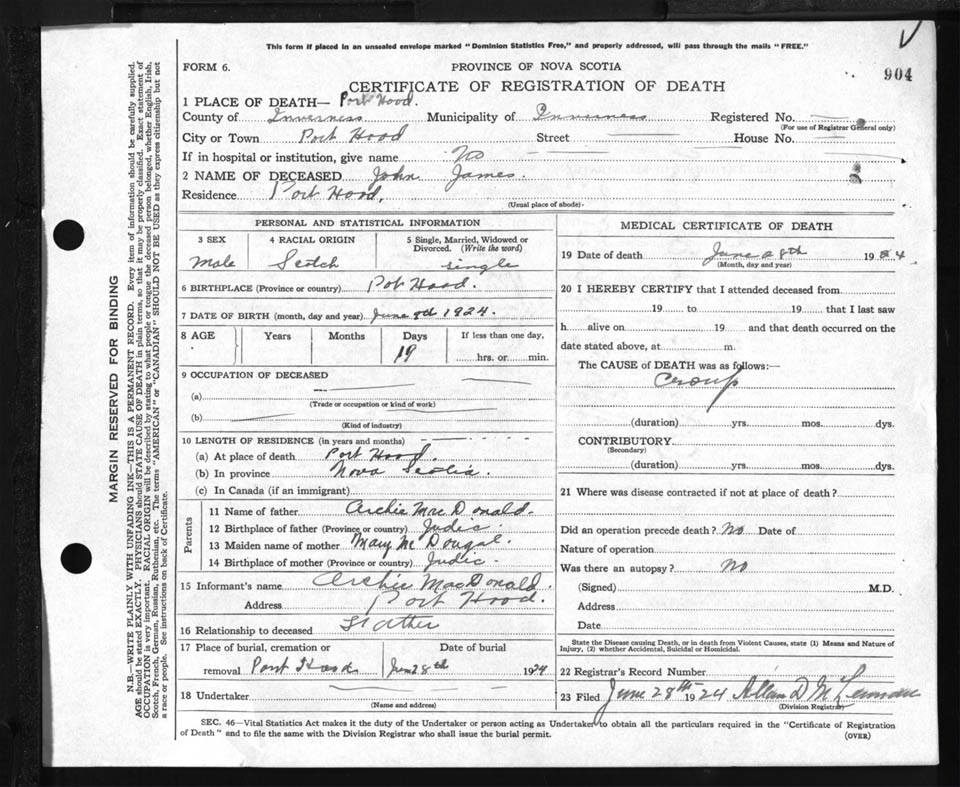 This form if placed in an unsealed envelope marked "Dominion Statistics Free," and properly addressed, will pass through the mails "FREE."
FORM 6.
PROVINCE OF NOVA SCOTIA
904
CERTIFICATE OF REGISTRATION OF DEATH
1 PLACE OF DEATH— Port Hood.
County of Inverness Municipality of Inverness Registered No.
(For use of Registrar General only)
City or Town Port Hood Street House No.
If in hospital or institution, give name No
2 NAME OF DECEASED John James.
Residence Port Hood.
(Usual place of abode)
PERSONAL AND STATISTICAL INFORMATION
3 SEX Male
4 RACIAL ORIGIN Scotch
5 Single, Married, Widowed or Divorced. (Write the word) single
6 BIRTHPLACE (Province or country) Pot Hood.
7 DATE OF BIRTH (month, day and year) June 9th 1924.
8 AGE Years Months Days 19 If less than one day, hrs. or min.
9 OCCUPATION OF DECEASED
(a)
(Trade or occupation or kind of work)
(b)
(Kind of industry)
10 LENGTH OF RESIDENCE (in years and months)
(a) At place of death Port Hood.
(b) In province Nova Scotia.
(c) In Canada (if an immigrant)
Parents
11 Name of father Archie Mac Donald.
12 Birthplace of father (Province or country) Judic.
13 Maiden name of mother Mary Mc Dougal.
14 Birthplace of mother (Province or country) Judic.
15 Informant's name Archie MacDonald.
Address Port Hood.
16 Relationship to deceased Father
17 Place of burial, cremation or removal Port Hood
Date of burial June 28th 1924
18 Undertaker
(Name and address)
MEDICAL CERTIFICATE OF DEATH
19 Date of death June 28th 1924
(Month, day and year)
20 I HEREBY CERTIFY that I attended deceased from
19 to 19 that I last saw
h alive on 19 and that death occurred on the
date stated above, at m.
The CAUSE OF DEATH was as follows:—
Croup
(duration) yrs. mos. dys.
CONTRIBUTORY
(Secondary)
(duration) yrs. mos. dys.
21 Where was disease contracted if not at place of death?
Did an operation precede death? No Date of
Nature of operation
Was there an autopsy? No
(Signed) M.D.
Address
Date
State the Disease causing Death, or in death from Violent Causes, state (1) Means and Nature of
Injury, (2) whether Accidental, Suicidal or Homicidal.
22 Registrar's Record Number
23 Filed June 28th 1924 Allan D
(Division Registrar)
SEC. 46—Vital Statistics Act makes it the duty of the Undertaker or person acting as Undertaker to obtain all the particulars required in the "Certificate of Registration
of Death" and to file the same with the Division Registrar who shall issue the burial permit.
(OVER)
MARGIN RESERVED FOR BINDING
N.B.—WRITE PLAINLY WITH UNFADING INK—THIS IS A PERMANENT RECORD. Every item of information should be carefully supplied.
AGE should be stated EXACTLY. PHYSICIANS should STATE CAUSE OF DEATH in plain terms, so that it may be properly classified. Exact statement of
OCCUPATION is very important. RACIAL ORIGIN will be described by stating to what people or tongue the deceased person belonged, whether English, Irish,
Scotch, French, German, Russian, Ruthenian, etc. The terms "AMERICAN" or "CANADIAN" SHOULD NOT BE USED as they express citizenship but not
a race or people. See instructions on back of Certificate.